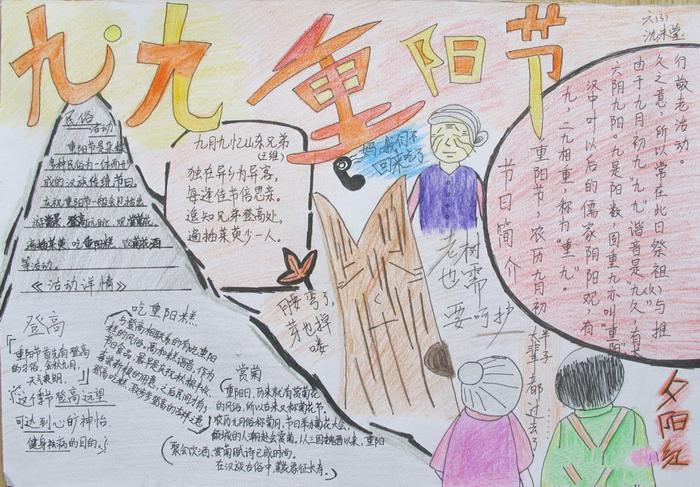 九九重阳节
六(3)
民俗
活动
重阳节是杂糅
多种民俗为一体而形
成的汉族传统节日。
庆祝重阳节一般会包括
遍插茱萸、吃重阳糕、
等活动。
《活动详情》
九月九忆山东兄弟
(王维)
独在异乡为异客,
每逢佳节倍思亲。
遥知兄弟登高处,
遍插茱萸少一人。
妈,我们不
回来吃了
腰弯了,
芽也掉
喽
老树
也需
要呵护
节日简介
重阳节,农历九月初
九,二九相重,称为“重九”。
汉中叶以后的儒家阴阳观,有
六阴九阳。九是阳数,固重九亦叫“重阳”。
由于九月初九“九九”谐音是“久久”,有
久之意,所以常在此日祭祖与推
行敬老活动。
登高
重阳节首先有登高
的习俗,金秋九月,
天气爽朗,
这个季节登高远望
可达到心旷神怡、
健身祛病的目的。
吃重阳糕
与登高相联系的有吃重阳
糕的风俗。高和糕谐音,作为
节日食品,最早是庆祝秋粮丰收、
喜尝新粮的用意,之后民间才有了
登高吃糕,取步步登高的吉祥之意。
赏菊
重阳日,历来就有赏菊花
的风俗,所以古来又称菊花节。
农历九月俗称菊月,节日举办菊花大会,
倾城的人潮赴会赏菊。从三国魏晋以来,重阳
聚会饮酒、赏菊赋诗已成时尚。
在汉族古俗中,菊花象征长寿。
半辈子
都过去了
夕阳红